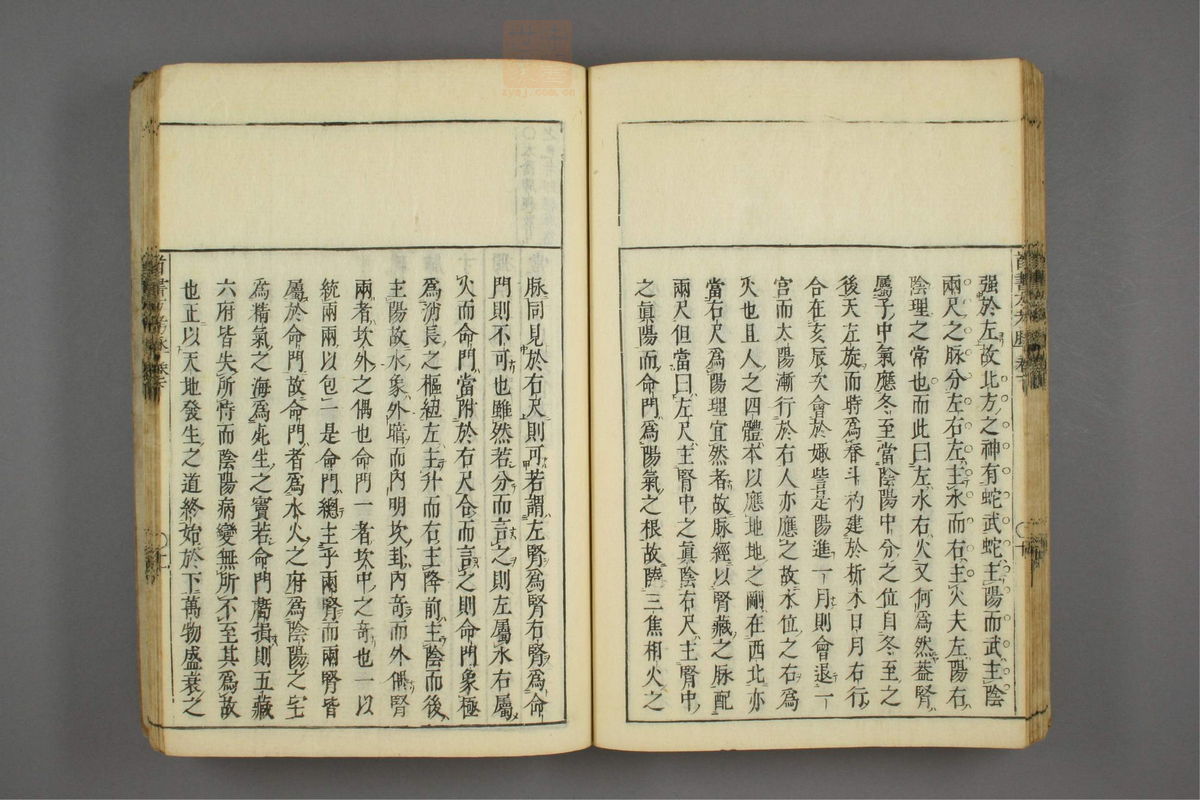 強於左故北方之神有蛇武蛇主陽而武主陰
兩尺之脉分左右左主水而右主火夫左陽右
陰理之常也而此曰左水右火又何爲然蓋腎
屬子中氣應冬至當陰陽中分之位自冬至之
後天左旋而時爲春斗杓建於析木日月右行
合在亥辰次會於娵訾是陽進一月則會退一
宮而太陽漸行於右人亦應之故本位之右爲
火也且人之四體本以應地地之剛在西北亦
當右尺爲陽理宜然者故脉經以腎藏之脉配
兩尺但當曰左尺主腎中之眞陰右尺主腎中
之眞陽而命門爲陽氣之根故隨三焦相火之
脉同見於右尺則可若謂左腎爲腎右腎爲命
門則不可也雖然若分而言之則左屬水右屬
火而命門當附於右尺合而言之則命門象極
爲消長之樞紐左主升而右主降前主陰而後
主陽故水象外暗而內明坎卦內奇而外偶腎
兩者坎外之偶也命門一者坎中之奇也一以
統兩兩以包一是命門總主乎兩腎而兩腎皆
屬於命門故命門者爲水火之府爲陰陽之宅
爲精氣之海爲死生之竇若命門虧損則五藏
六府皆失所恃而陰陽病變無所不至其爲故
也正以天地發生之道終始於下萬物盛衰之